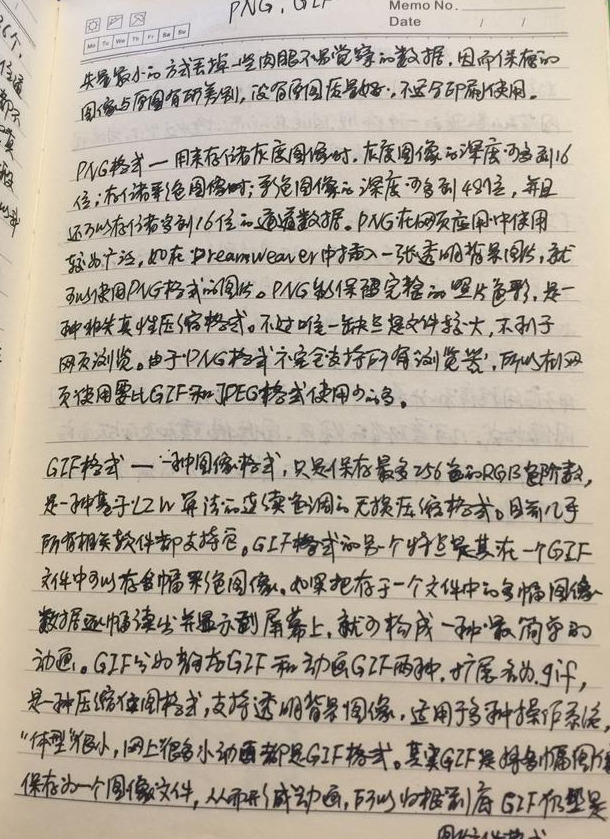 PNG, GIF
Memo No.
Date / /
Mo Tu We Th Fr Sa Su
失量最小的方式丢掉一些肉眼不易觉察的数据,因而保存的
图像与原图有所差别,没有原图质量好,不适合印刷使用。
PNG格式—用来存储灰度图像时,灰度图像的深度可多到16
位;存储彩色图像时,彩色图像的深度可多到48位,并且
还可以存储多到16位的通道数据。PNG在网页应用中使用
较为广泛,如在Dreamweaver中插入一张透明背景图片,就
可以使用PNG格式的图片。PNG能保留完整的照片色彩,是一
种非失真性压缩格式。不过唯一缺点是文件较大,不利于
网页浏览。由于PNG格式不完全支持所有浏览器,所以在网
页使用要比GIF和JPEG格式使用少的多。
GIF格式—一种图像格式,只是保存最多256色的RGB色阶数,
是一种基于LZW算法的连续色调的无损压缩格式。目前几乎
所有相关软件都支持它。GIF格式的另个特点是其在一个GIF
文件中可以存多幅彩色图像。如果把存于一个文件中的多幅图像
数据逐幅读出并显示到屏幕上,就可构成一种最简单的
动画。GIF分为静态GIF和动画GIF两种,扩展名为.gif,
是一种压缩位图格式,支持透明背景图像,适用于多种操作系统,
“体型”很小,网上很多小动画都是GIF格式。其实GIF是将多幅图像
保存为一个图像文件,从而形成动画,所以归根到底GIF仍然是
图像文件格式